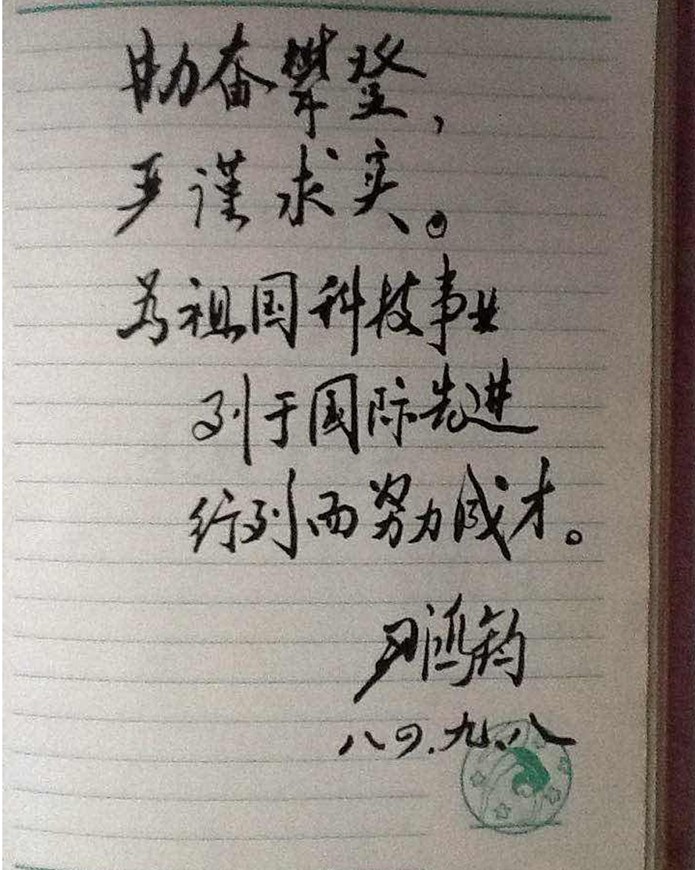 勤奋攀登,
严谨求实。
为祖国科技事业
列于国际先进
行列而努力成才。
尹鸿钧
八四.九.八